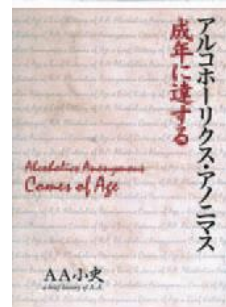 アルコホーリクス・アノニマス
成年に達する
Alcoholics Anonymous
Comes of Age
AA小史
a brief history of A.A.